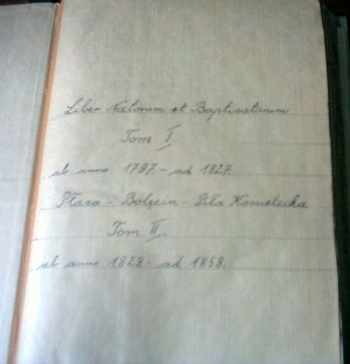 Liber Natorum et Baptisatorum
Tom I
ab anno 1797 - ad 1827.
Płaza - Bolęcin - Piła Kościelecka
Tom II.
ab anno 1828 - ad 1858.